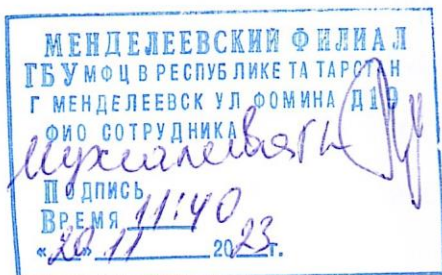 МЕНДЕЛЕЕВСКИЙ ФИЛИАЛ
ГБУ МФЦ В РЕСПУБЛИКЕ ТАТАРСТАН
Г МЕНДЕЛЕЕВСК УЛ ФОМИНА Д19
ФИО СОТРУДНИКА
ПОДПИСЬ
ВРЕМЯ 11:40
«20» 11 2023г.